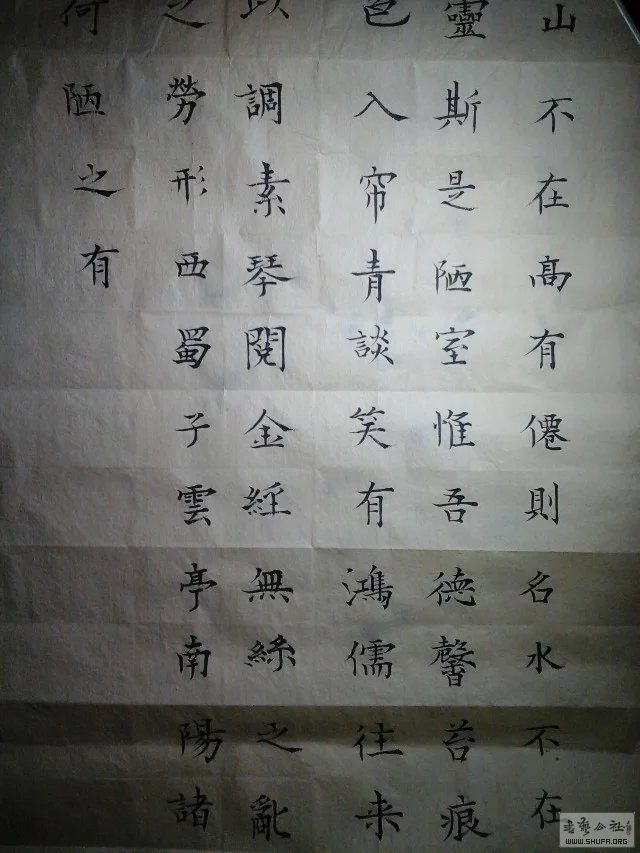 山不在髙有僊則名水不在
靈斯是陋室惟吾德馨苔痕
色入帘青談笑有鴻儒往来
以調素琴閱金經無絲之亂
之勞形西蜀子雲亭南陽諸
何陋之有
WWW.SHUFA.ORG